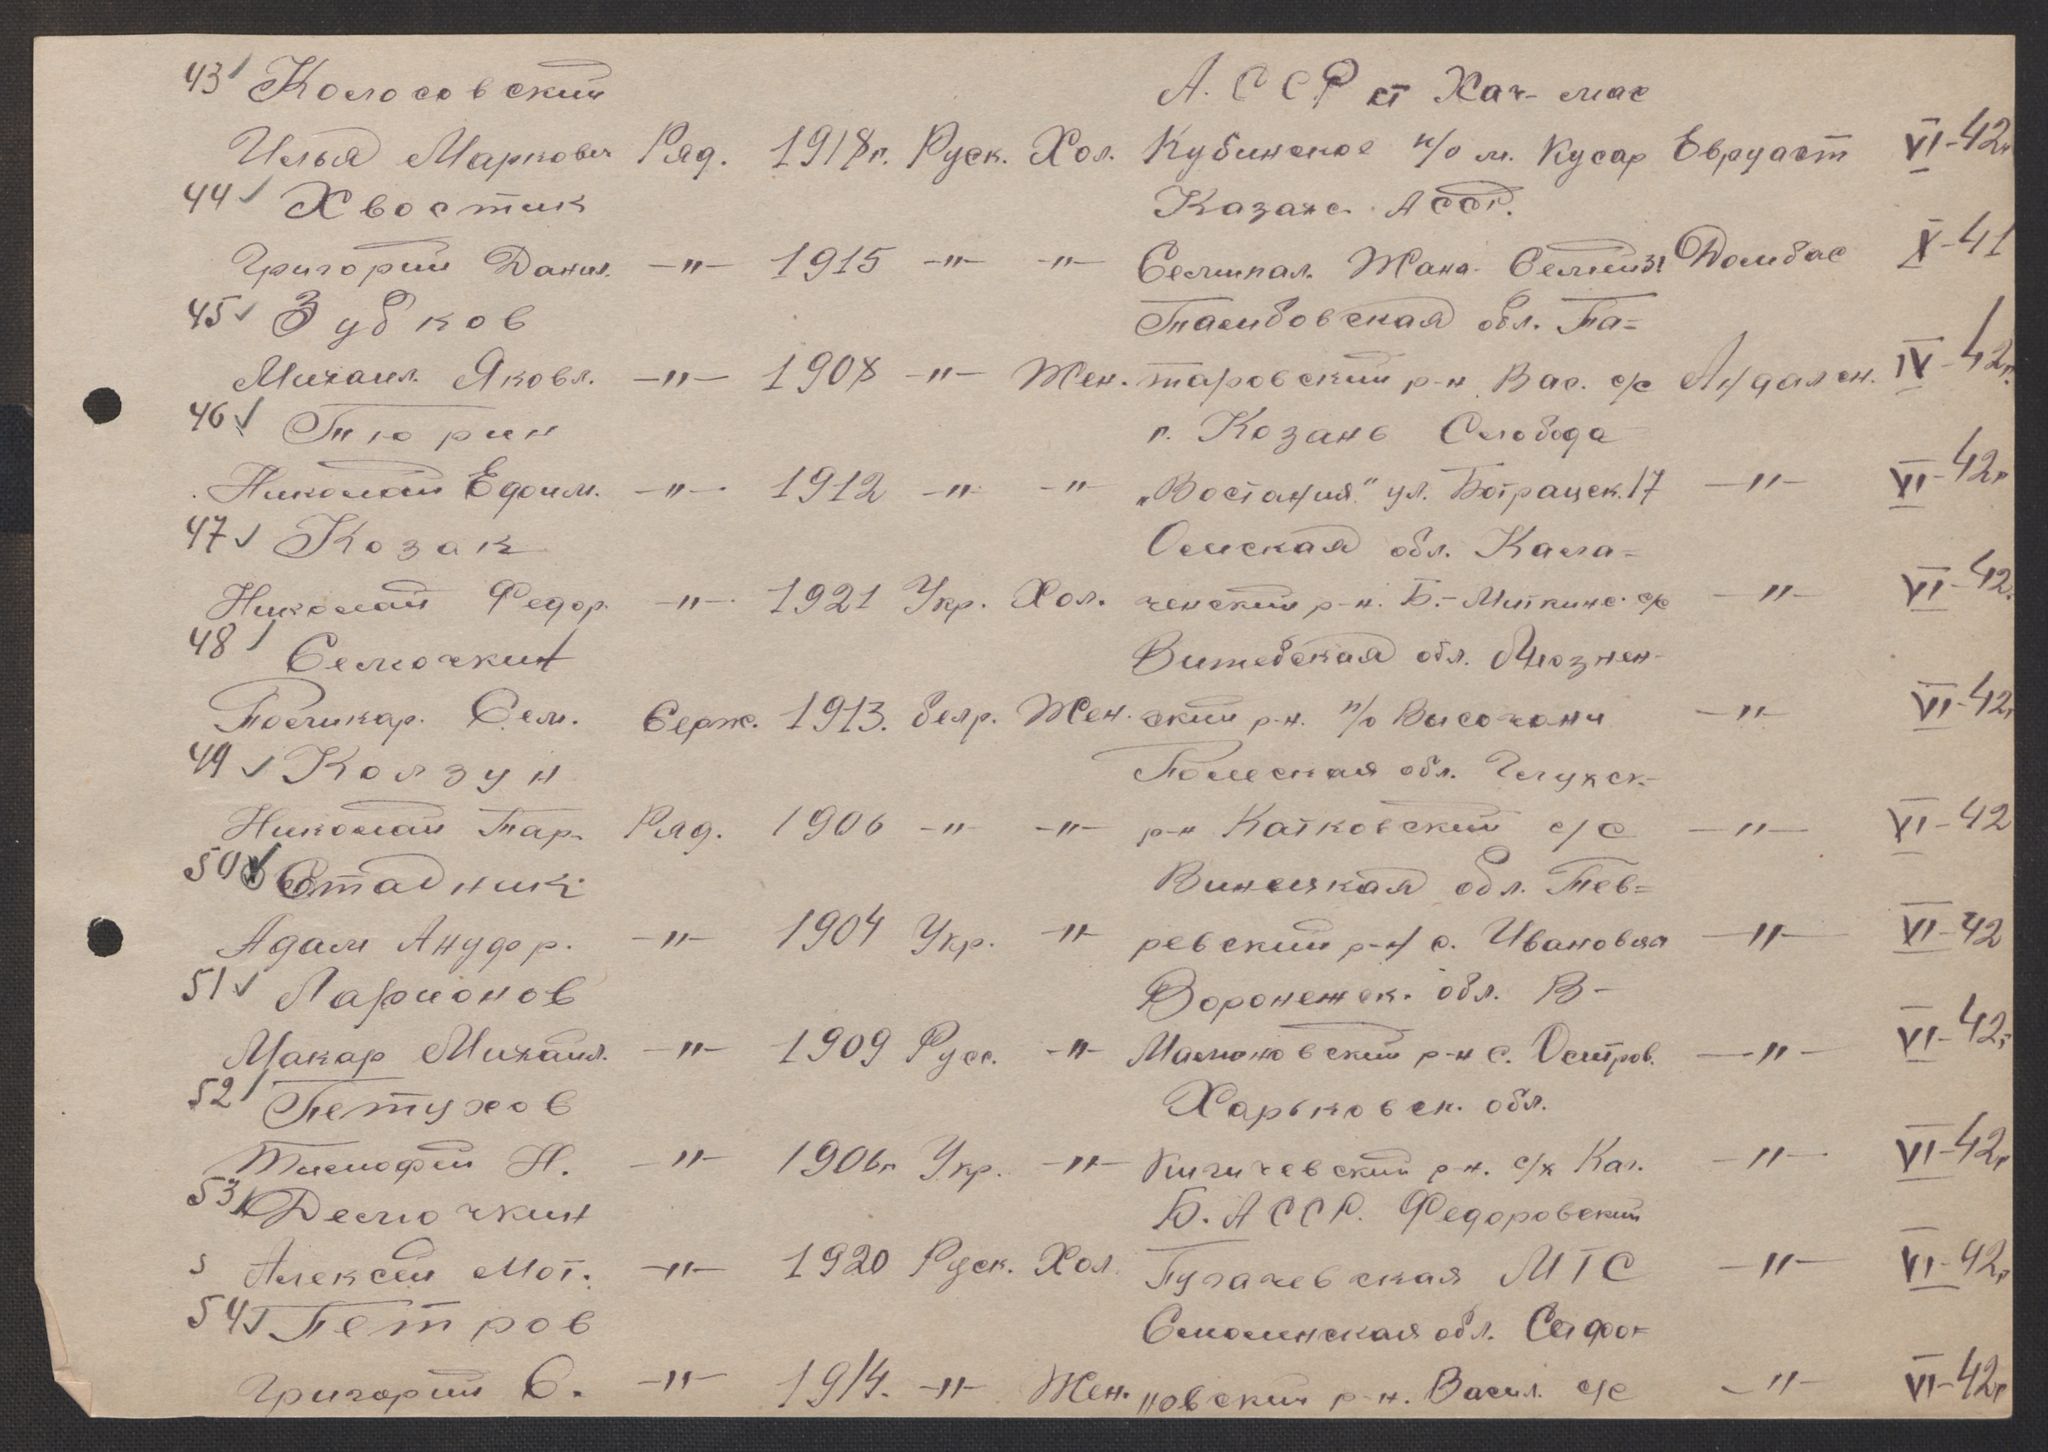 43 Колосовский А. ССР ст Хач-мас
Илья Маркович Ряд. 1918г. Руск. Хол. Кубинское п/о м. Кусар Евруаст VI-42г
44 Хвостик Казахс. АССР.
Григорий Данил. —"— 1915 —"— —"— Семипал. Жана- Домбас X-41
45 Зубков Тамбовская обл. Та=
Михаил. Яковл. —"— 1908 —"— Жен. таровский р-н Вас. с/с IV-42г.
46 Тюрин г. Козань Слобода
Николай Ефим. —"— 1912 —"— —"— „Востания" ул. 17 —"— VI-42г
47 Козак Омская обл. Кала=
Николай Федор. —"— 1921 Укр. Хол. ченский р-н. Б.-Миткинс. с/с —"— VI-42.
48 Семочкин Витебская обл. Лиознен-
Поликар. Сем. Серж. 1913. белр. Жен. ский р-н. п/о Высочани —"— VI-42г
49 Колзун Полеская обл. Глухск-
Николай Тар. Ряд. 1906 —"— —"— р-н Катковский с/с —"— VI-42
50 Стадник Винецкая обл. Тев=
Адам Ануфр. —"— 1904 Укр. —"— ревский р-н с. Ивановка —"— VI-42
51 Ларионов Воронежск. обл. В-
Макар Михаил. —"— 1909 Русс. —"— Мамоновский р-н с. Остров. —"— VI-42г
52 Петухов Харьковск. обл.
Тимофей Н. —"— 1906г Укр. —"— Кигичевский р-н. с/х Каг. —"— VI-42г
53 Демочкин Б. АССР. Федоровский
Алексей Мот. —"— 1920 Руск. Хол. Пугачевская МТС —"— VI-42г
54 Петров Смоленская обл. Сафо-
Григорий С. —"— 1914. —"— Жен. новский р-н. Васил. с/с —"— VI-42г